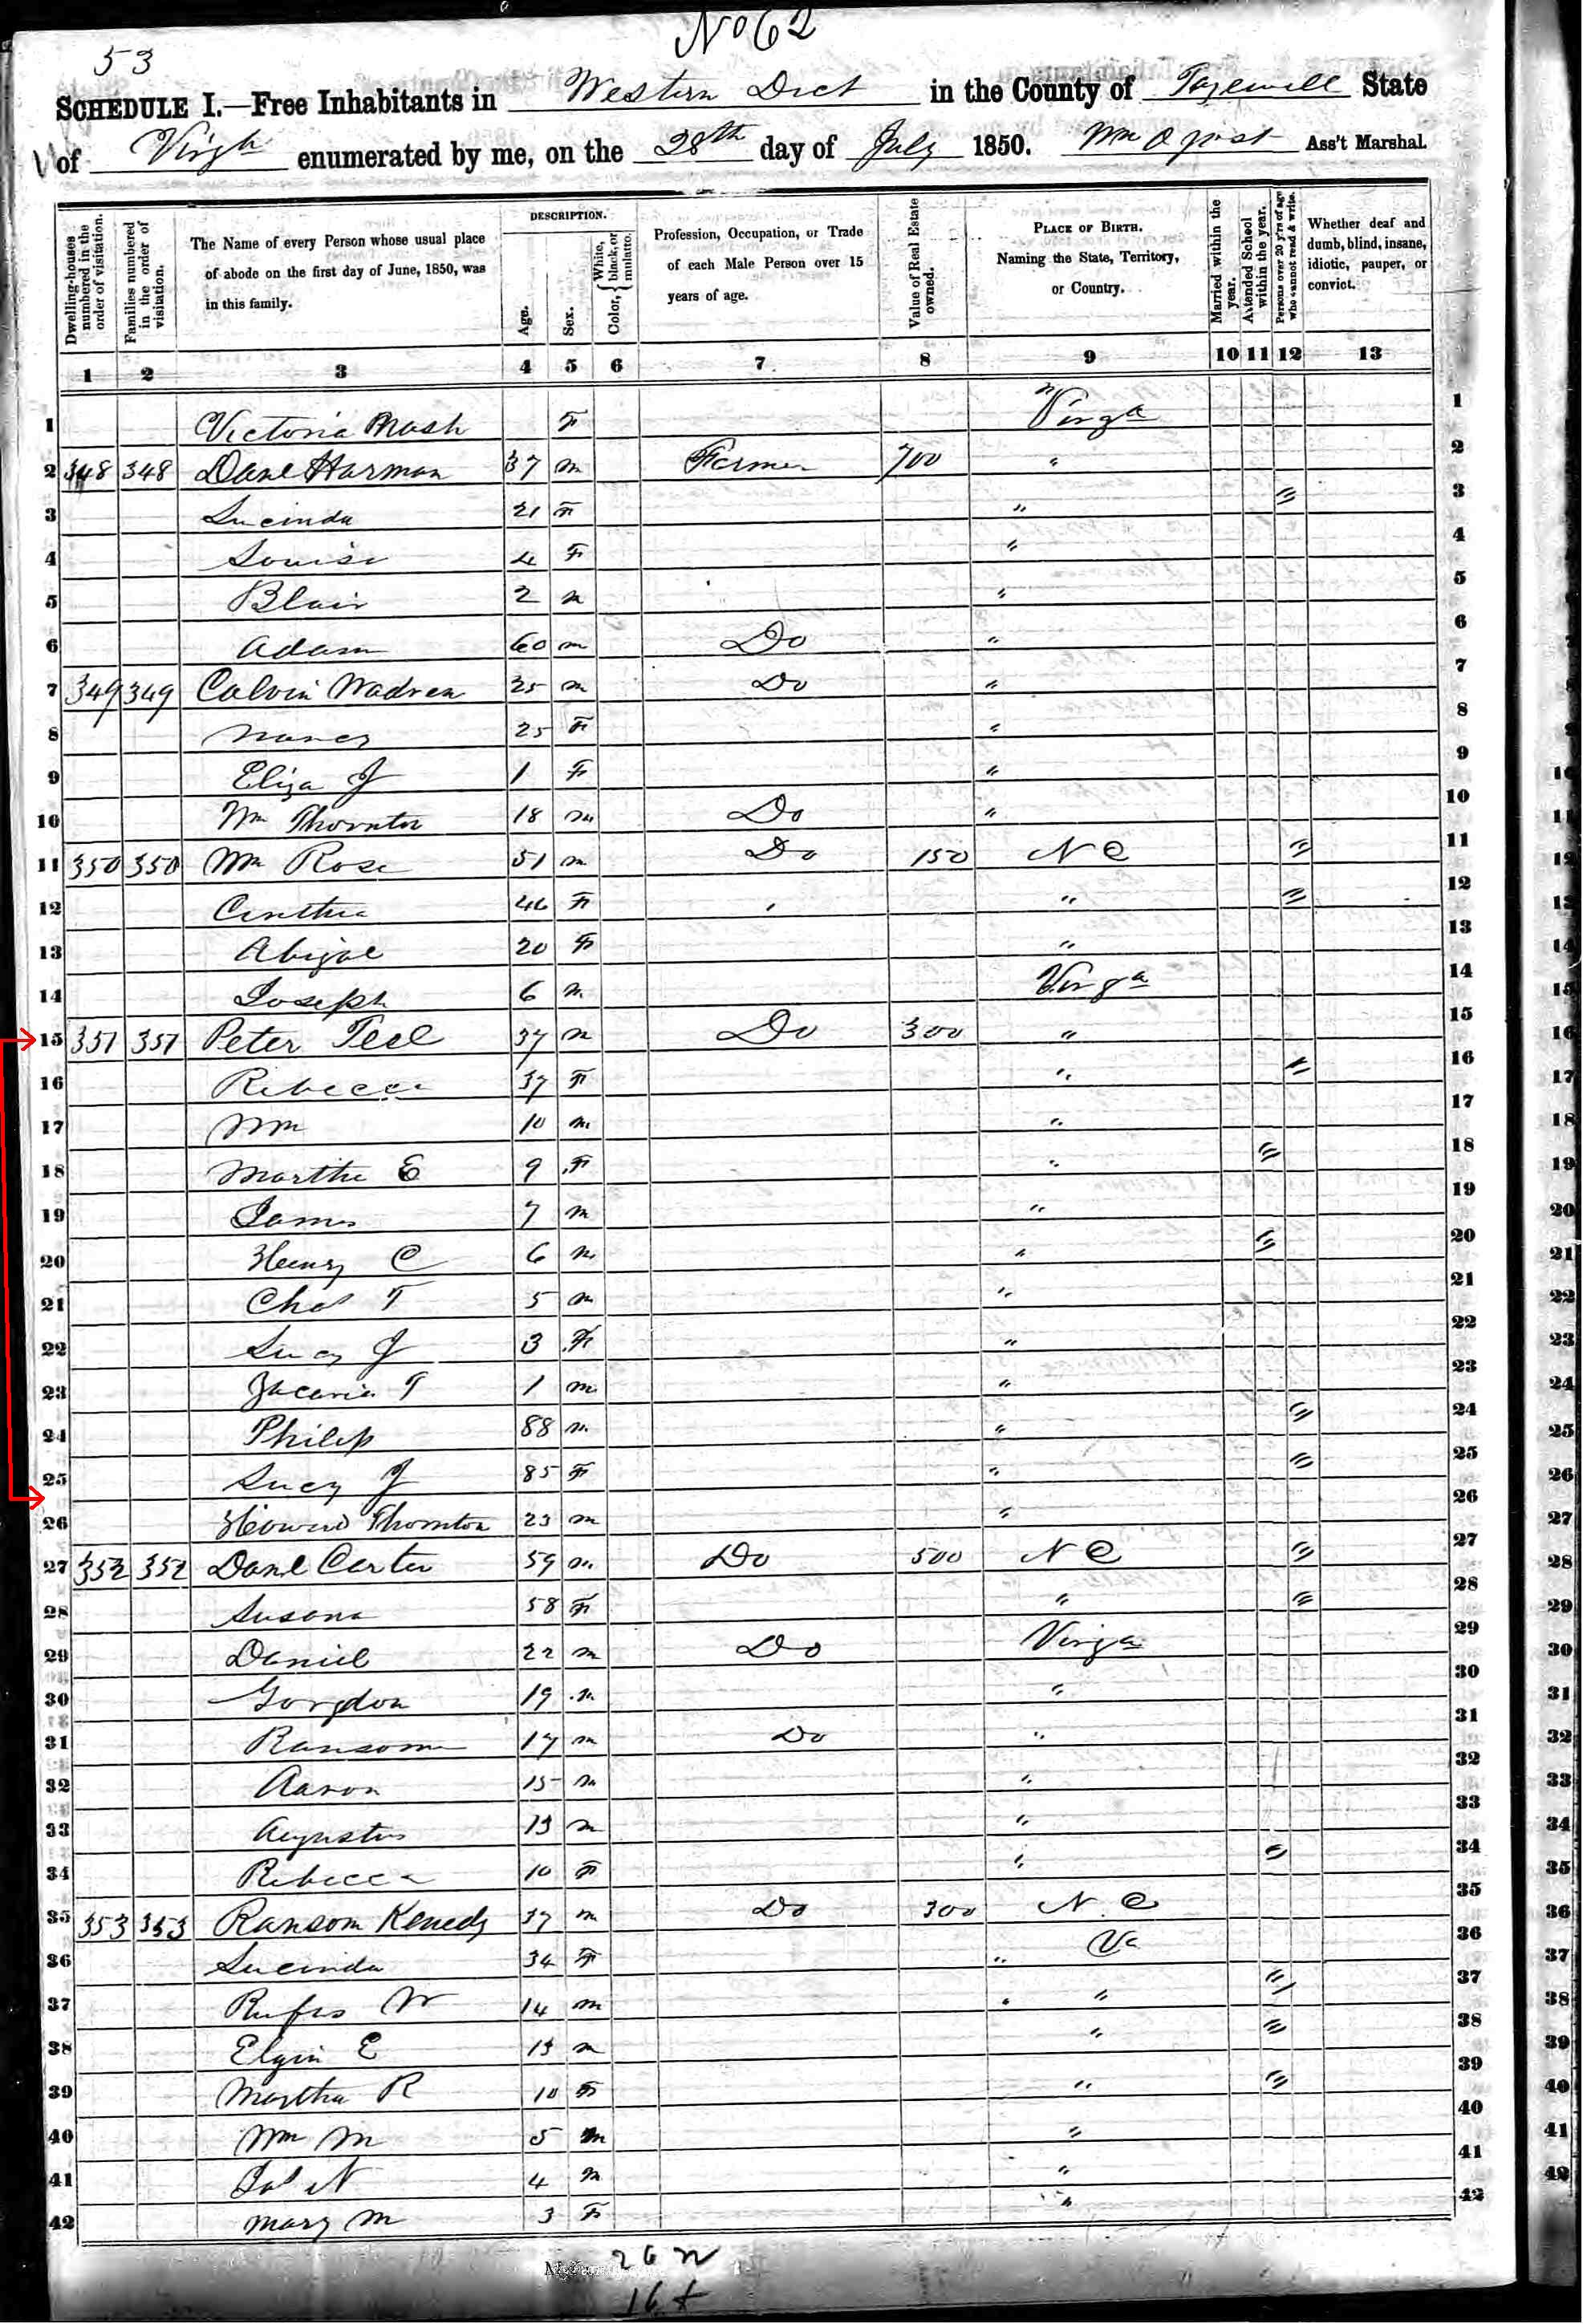 No 62
53
SCHEDULE I.—Free Inhabitants in Western Dict in the County of Tazewell State
of Virga enumerated by me, on the 28th day of July 1850. Wm O Ass't Marshal.
Dwelling-houses numbered in the order of visitation.
Families numbered in the order of visitation.
The Name of every Person whose usual place of abode on the first day of June, 1850, was in this family.
DESCRIPTION.
Age.
Sex.
Color, { White, black, or mulatto.
Profession, Occupation, or Trade of each Male Person over 15 years of age.
Value of Real Estate owned.
PLACE OF BIRTH. Naming the State, Territory, or Country.
Married within the year.
Attended School within the year.
Persons over 20 y'rs of age who cannot read & write.
Whether deaf and dumb, blind, insane, idiotic, pauper, or convict.
1 2 3 4 5 6 7 8 9 10 11 12 13
1 Victoria Mash F Virga 1
2 348 348 Danl Harman 37 m Farmer 700 " 2
3 Lucinda 21 F " 〃 3
4 Louisa 4 F " 4
5 Blair 2 m " 5
6 Adam 60 m Do " 6
7 349 349 Calvin Wadren 25 m Do " 7
8 Nancy 25 F " 8
9 Eliza J 1 F " 9
10 Wm Thornton 18 m Do " 10
11 350 350 Wm Rose 51 m Do 150 N C 〃 11
12 Cinthia 46 F " 〃 12
13 Abigal 20 F " 13
14 Joseph 6 m Virga 14
15 351 351 Peter Teel 37 m Do 300 " 15
16 Rebecca 37 F " 〃 16
17 Wm 10 m " 17
18 Martha E 9 F " 〃 18
19 James 7 m " 19
20 Henry C 6 m " 〃 20
21 Chas T 5 m " 21
22 Lucy J 3 F " 22
23 Zacaria T 1 m " 23
24 Philip 88 m " 〃 24
25 Lucy J 85 F " 〃 25
26 Howard Thornton 23 m " 26
27 352 352 Danl Carter 59 m Do 500 N C 〃 27
28 Susana 58 F " 〃 28
29 Daniel 22 m Do Virga 29
30 Gordon 19 m " 30
31 Ransom 17 m Do " 31
32 Aaron 15 m " 32
33 Augustus 13 m " 33
34 Rebecca 10 F " 〃 34
35 353 353 Ransom Kenedy 37 m Do 300 N. C 35
36 Lucinda 34 F " Va 36
37 Rufus W 14 m " 〃 37
38 Elgin E 13 m " 〃 38
39 Martha R 10 F " 〃 39
40 Wm M 5 m " 40
41 Jas N 4 m " 41
42 Mary M 3 F " 42
26 m
16 f
10
11
12
13
14
15
16
17
18
19
20
21
22
23
24
25
26
27
28
29
30
31
32
33
34
35
36
37
38
39
40
41
42